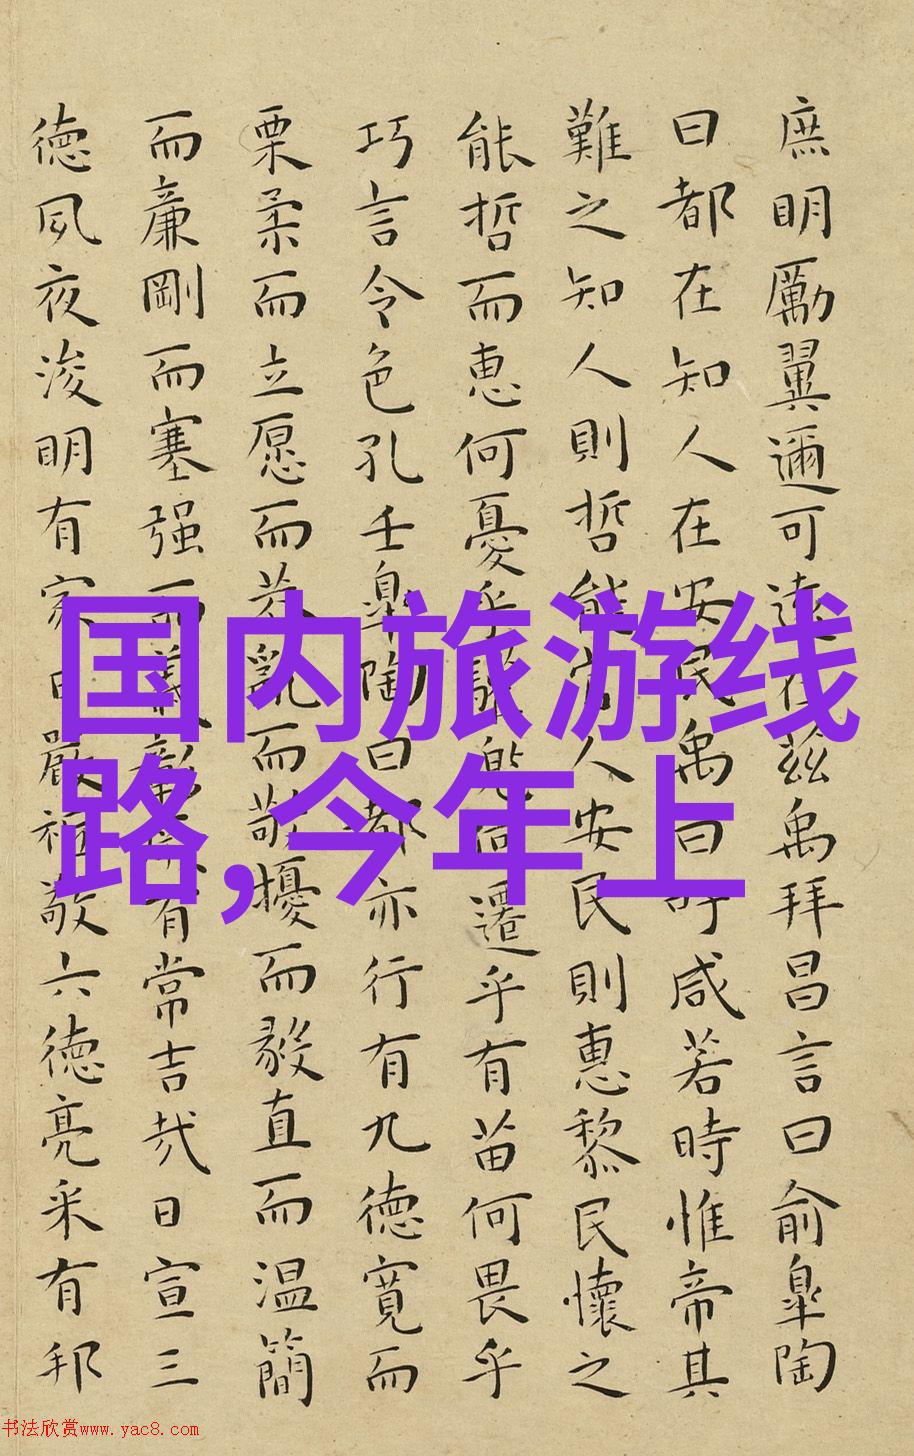 庶明勵翼邇可遠在茲禹拜昌言曰俞皐陶
曰都在知人在安民禹曰吁咸若時惟帝其
難之知人則哲能官人安民則惠黎民懷之
能哲而恵何憂乎驩兜何遷乎有苗何畏乎
巧言令色孔壬皐陶曰都亦行有九德寬而
栗柔而立愿而恭亂而敬擾而毅直而温簡
而廉剛而塞强而義彰厥有常吉哉日宣三
德夙夜浚明有家日嚴祗敬六德亮采有邦
国内旅游线
路,今年上
书法欣赏www.yac8.com